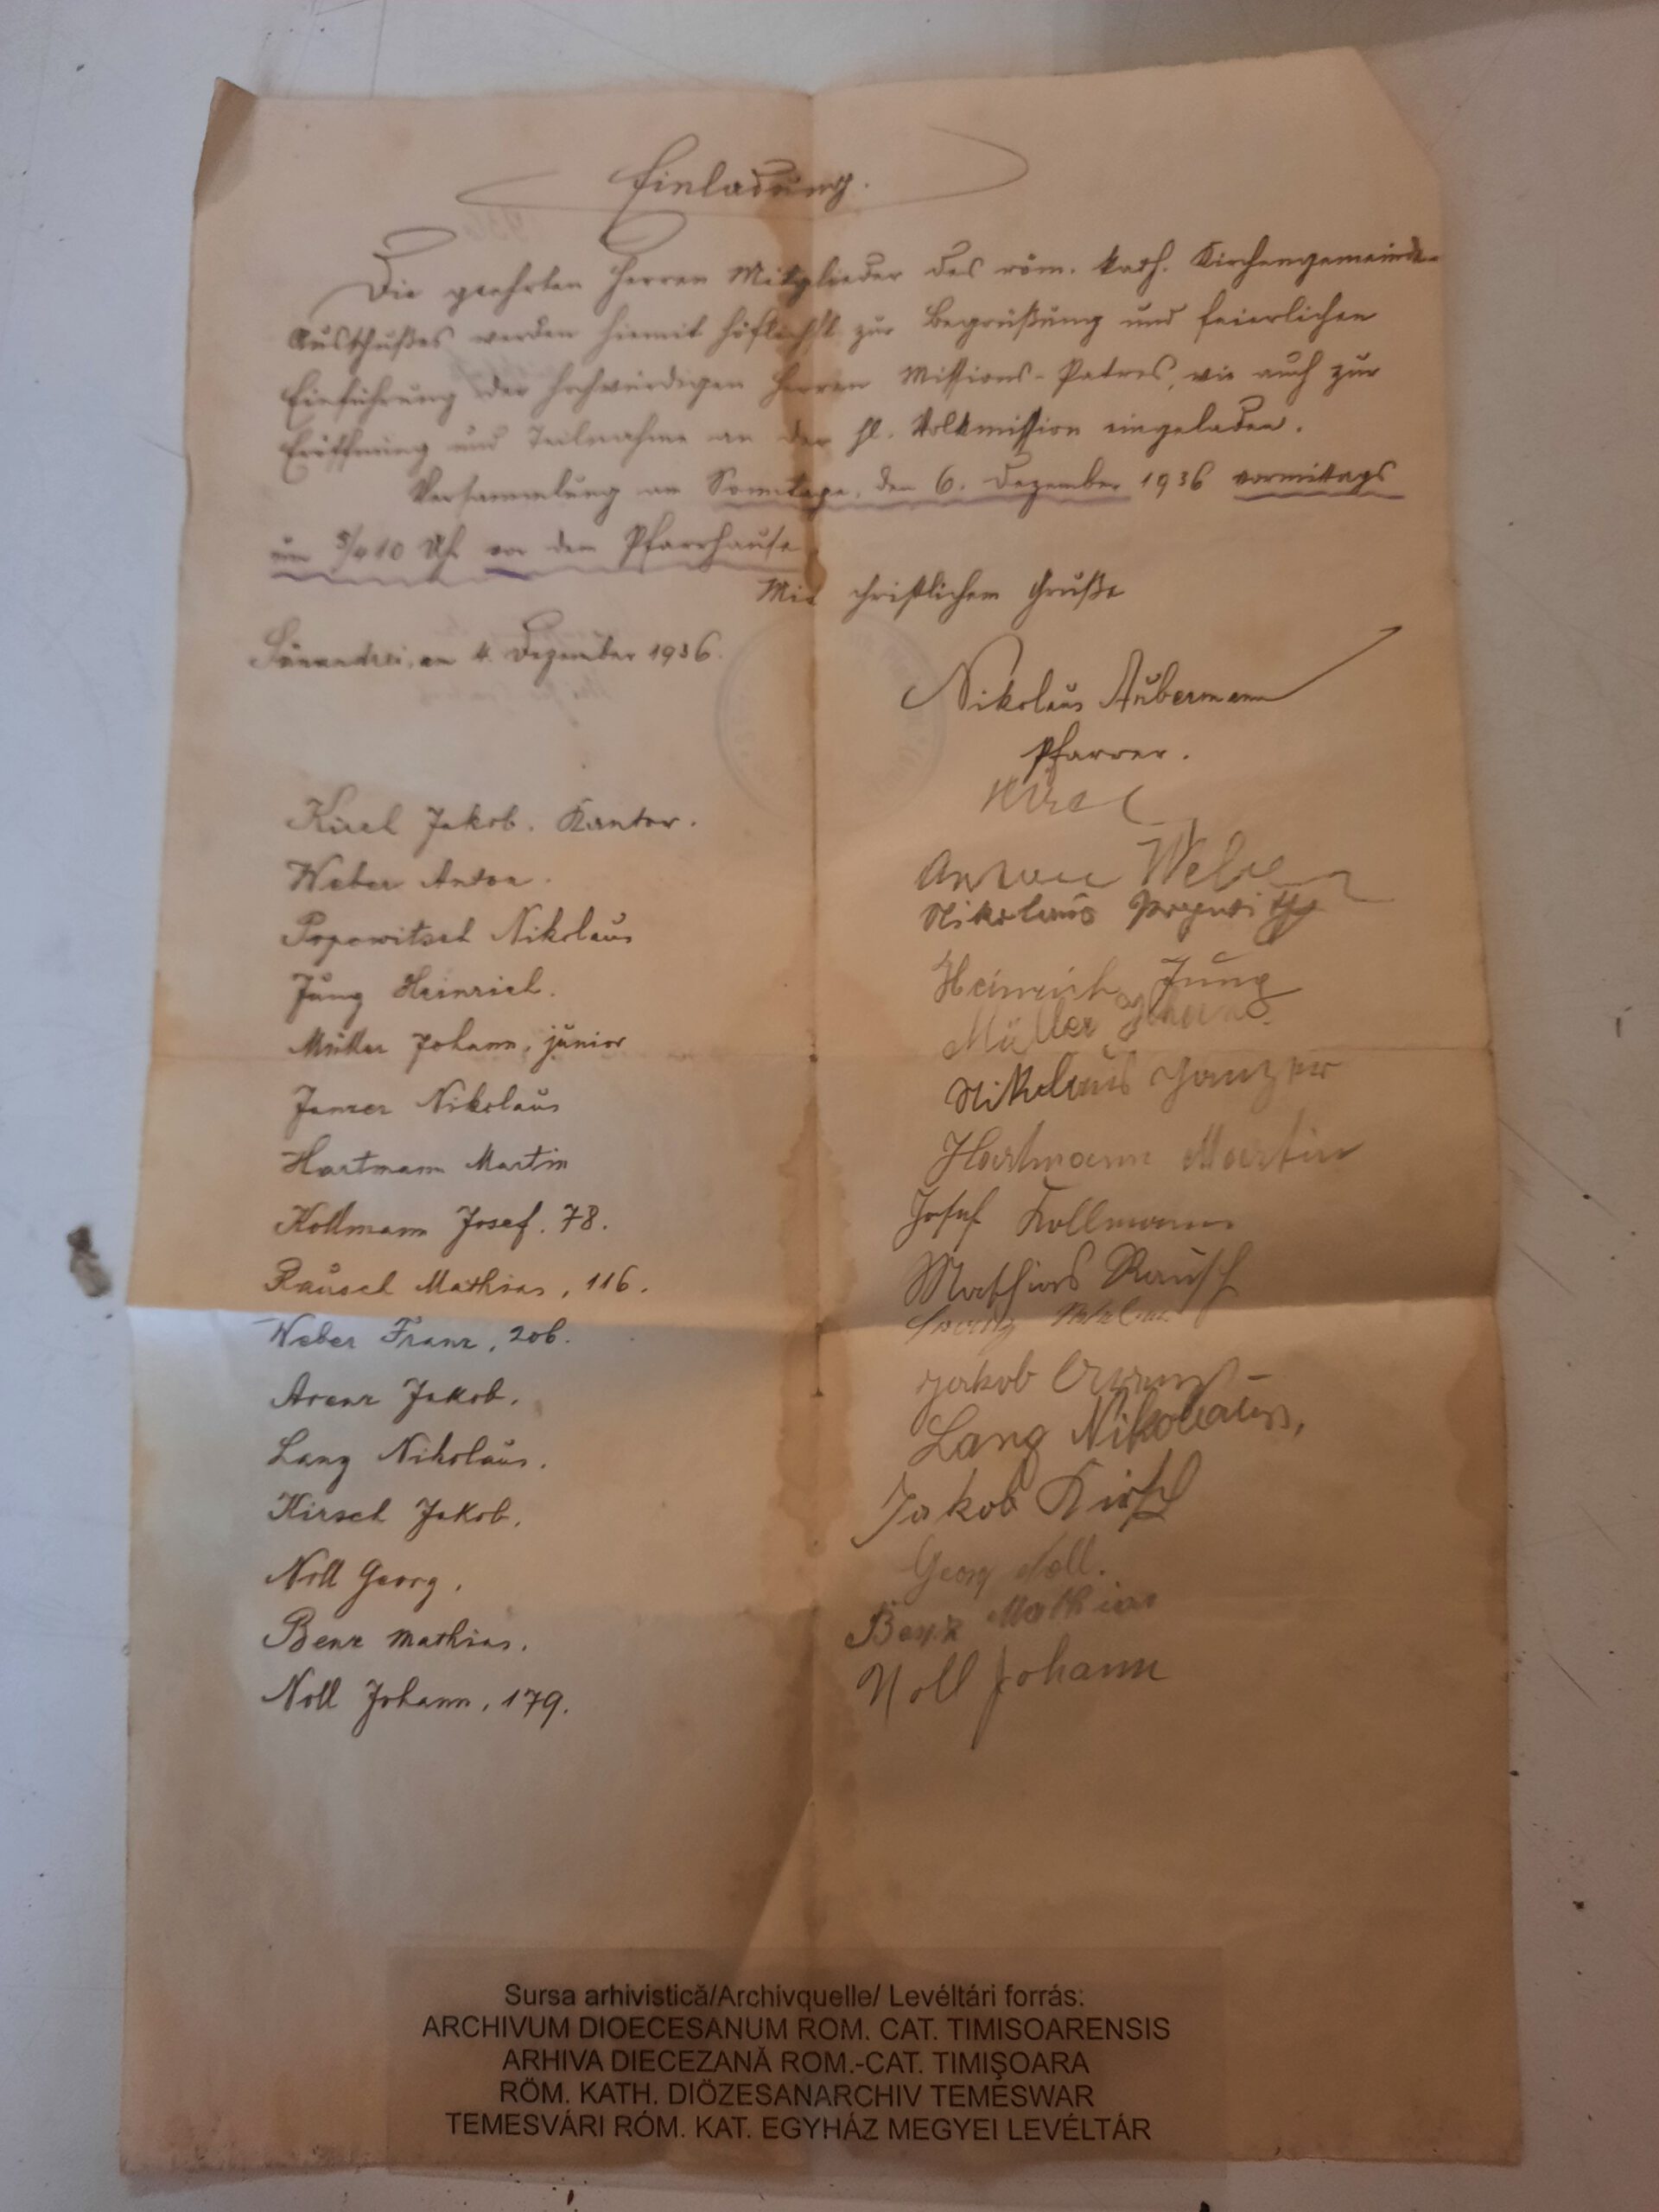 Einladung.
Die geehrten Herren Mitglieder des röm. kath. Kirchengemeinde-
Ausschußes werden hiemit höflichst zur Begrüßung und feierlichen
Einführung der hochwürdigen Herren Missions-Patres, wie auch zur
Eröffnung und Teilnahme an der hl. Volksmission eingeladen.
Versammlung am Sonntage, den 6. Dezember 1936 vormittags
um 3/4 10 Uhr vor dem Pfarrhause.
Mit christlichem Gruße
Sânandrei, am 4. Dezember 1936.
Nikolaus Aubermann
Pfarrer.
Jakob. Kantor.
Weber Anton.
Anton Weber
Popowitsch Nikolaus
Nikolaus
Jung Heinrich.
Heinrich Jung
Müller Johann, junior
Müller Johann
Janzer Nikolaus
Nikolaus Janzer
Hartmann Martin
Hartmann Martin
Kollmann Josef. 78.
Josef Kollmann
Rausch Mathias, 116.
Mathias Rausch
Weber Franz, 206.
Arenz Jakob.
Jakob Arenz
Lang Nikolaus.
Lang Nikolaus,
Kirsch Jakob.
Jakob Kirsch
Noll Georg.
Georg Noll.
Benz Mathias.
Benz Mathias
Noll Johann, 179.
Noll Johann
Sursa arhivistică/Archivquelle/ Levéltári forrás:
ARCHIVUM DIOECESANUM ROM. CAT. TIMISOARENSIS
ARHIVA DIECEZANĂ ROM.-CAT. TIMIŞOARA
RÖM. KATH. DIÖZESANARCHIV TEMESWAR
TEMESVÁRI RÓM. KAT. EGYHÁZ MEGYEI LEVÉLTÁR